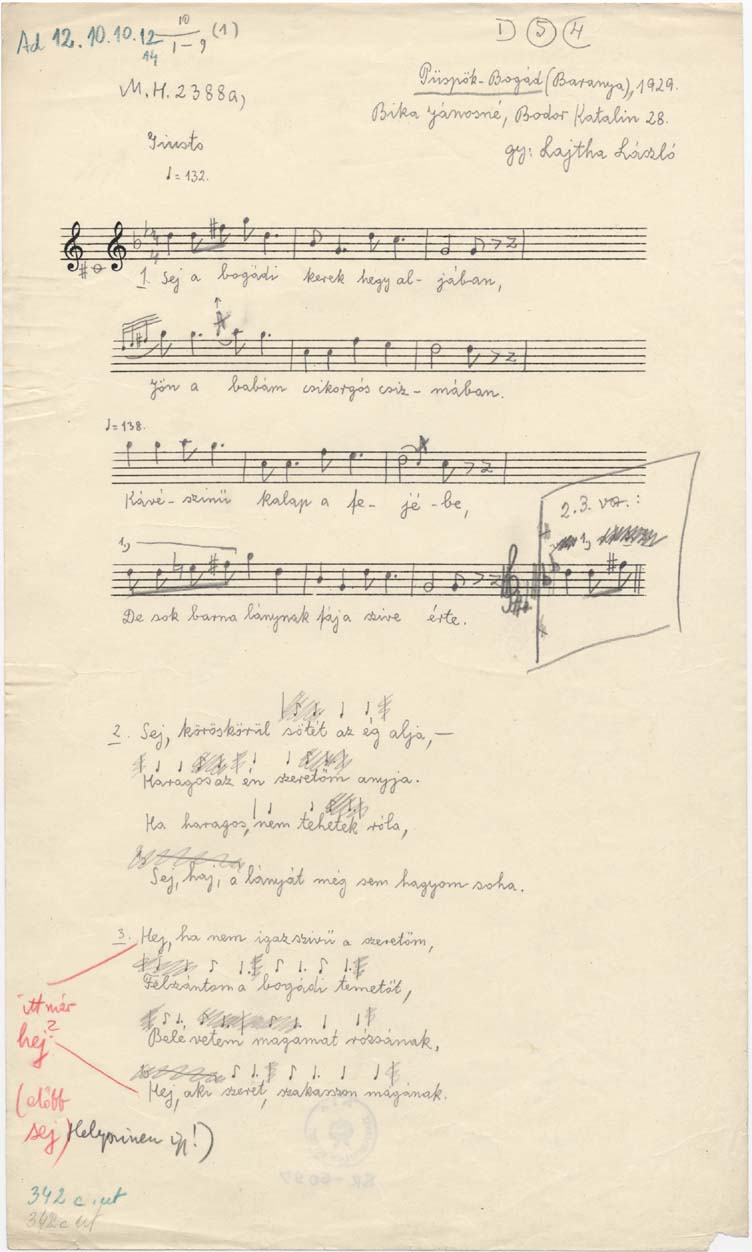 Ad 12.10.10.12 10 / 1-9 (1)
14
D 5 4
M.H. 2388a,
Püspök-Bogád (Baranya), 1929.
Bika Jánosné, Bodor Katalin 28.
gy: Lajtha László
Giusto
♩=132.
1. Sej a bogádi kerek hegyal- jában,
Jön a babám csikorgós csiz- mában.
♩=138.
Kávé- szinü kalap a fe- jé- be,
2.3. vsz. :
1,
1,
De sok barna lánynak fája szive érte.
2. Sej, köröskörül sötét az ég alja, –
Haragos az én szeretöm anyja.
Ha haragos, nem tehetek róla,
Sej, haj, a lányát még sem hagyom soha.
3. Hej, ha nem igazszivü a szeretöm,
Felszántom a bogádi temetöt,
Belé vetem magamat rózsának,
Hej, aki szeret, szakasszon magának.
itt már
hej?
(előbb
sej)
Helyesen így!)
342 c. ut
342 c ut